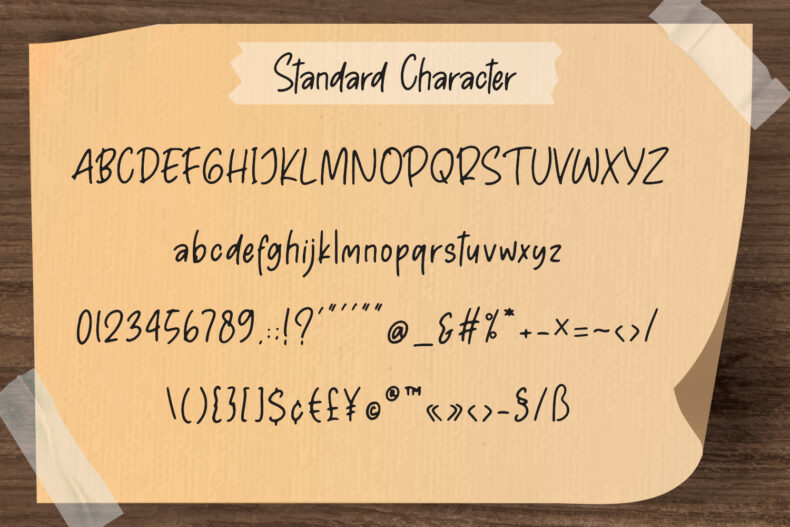 Standard Character
ABCDEFGHIJKLMNOPQRSTUVWXYZ
abcdefghijklmnopqrstuvwxyz
0123456789.,:;!?'"‘’“”@_&#%*+-×=~<>/
\(){}[]$¢€£¥©®™«»‹›-§/ß